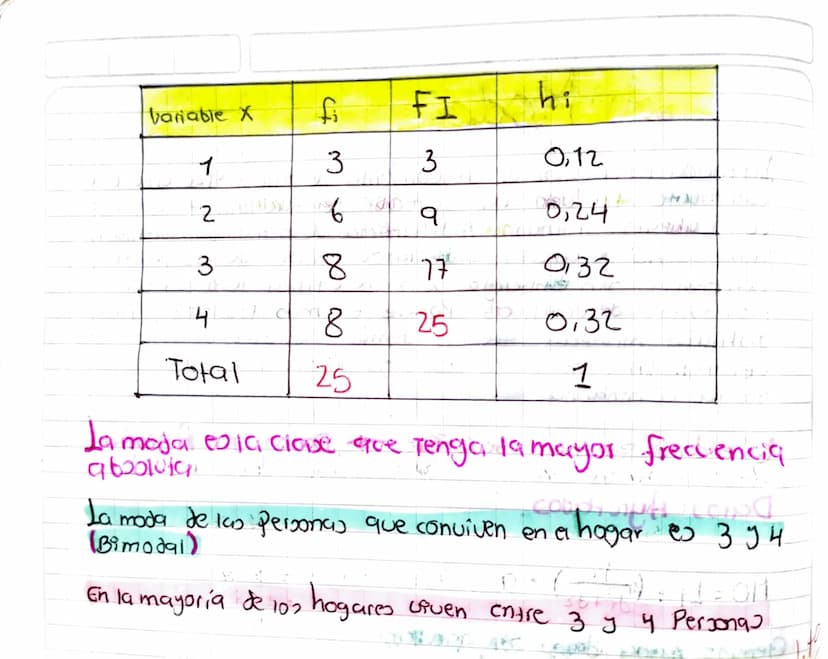 Variable X fi FI hi
1 3 3 0,12
2 6 9 0,24
3 8 17 0,32
4 8 25 0,32
Total 25 1
La moda es la clase que Tenga la mayor frecuencia
absoluta
La moda de las Personas que conviven en el hogar es 3 y 4
(Bimodal)
En la mayoría de los hogares viven entre 3 y 4 Personas